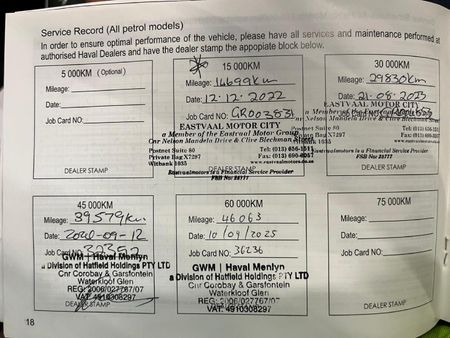 Service Record (All petrol models)
In order to ensure optimal performance of the vehicle, please have all services and maintenance performed at
authorised Haval Dealers and have the dealer stamp the appopiate block below.
5 000KM (Optional)
Mileage:
Date:
Job Card NO:
DEALER STAMP
15 000KM
Mileage: 14699km
Date: 12.12.2022
Job Card NO: GR003831
EASTVAAL MOTOR CITY
a Member of the Eastvaal Motor Group
Cnr Nelson Mandela Drive & Clive Blechman Street
Postnet Suite 80
Private Bag X7297
Witbank 1035
Tel: (013)
Fax: (013)
DEALER STAMP
Eastvaalmotors is a Financial Service Provider
FSB No: 28777
30 000KM
Mileage: 29830km
Date: 21-08-2023
EASTVAAL MOTOR CITY
a Member of the Eastvaal Motor
Job Card NO:
Cnr Nelson Mandela Drive & Clive Blechman Street
Postnet Suite 80
Private Bag X7297
Witbank 1035
Tel: (013)
Fax: (013)
DEALER STAMP
Eastvaalmotors is a Financial Service Provider
FSB No: 28777
45 000KM
Mileage: 39579km
Date: 2024-09-12
Job Card NO:
GWM | Haval Menlyn
a Division of Hatfield Holdings PTY LTD
Cnr Corobay & Garsfontein
Waterkloof Glen
REG: 2006/027767/07
VAT: 4910308297
DEALER STAMP
60 000KM
Mileage: 46063
Date: 10/09/2025
Job Card NO: 36236
GWM | Haval Menlyn
a Division of Hatfield Holdings PTY LTD
Cnr Corobay & Garsfontein
Waterkloof Glen
REG: 2006/027767/07
VAT: 4910308297
DEALER STAMP
75 000KM
Mileage:
Date:
Job Card NO:
DEALER STAMP
18